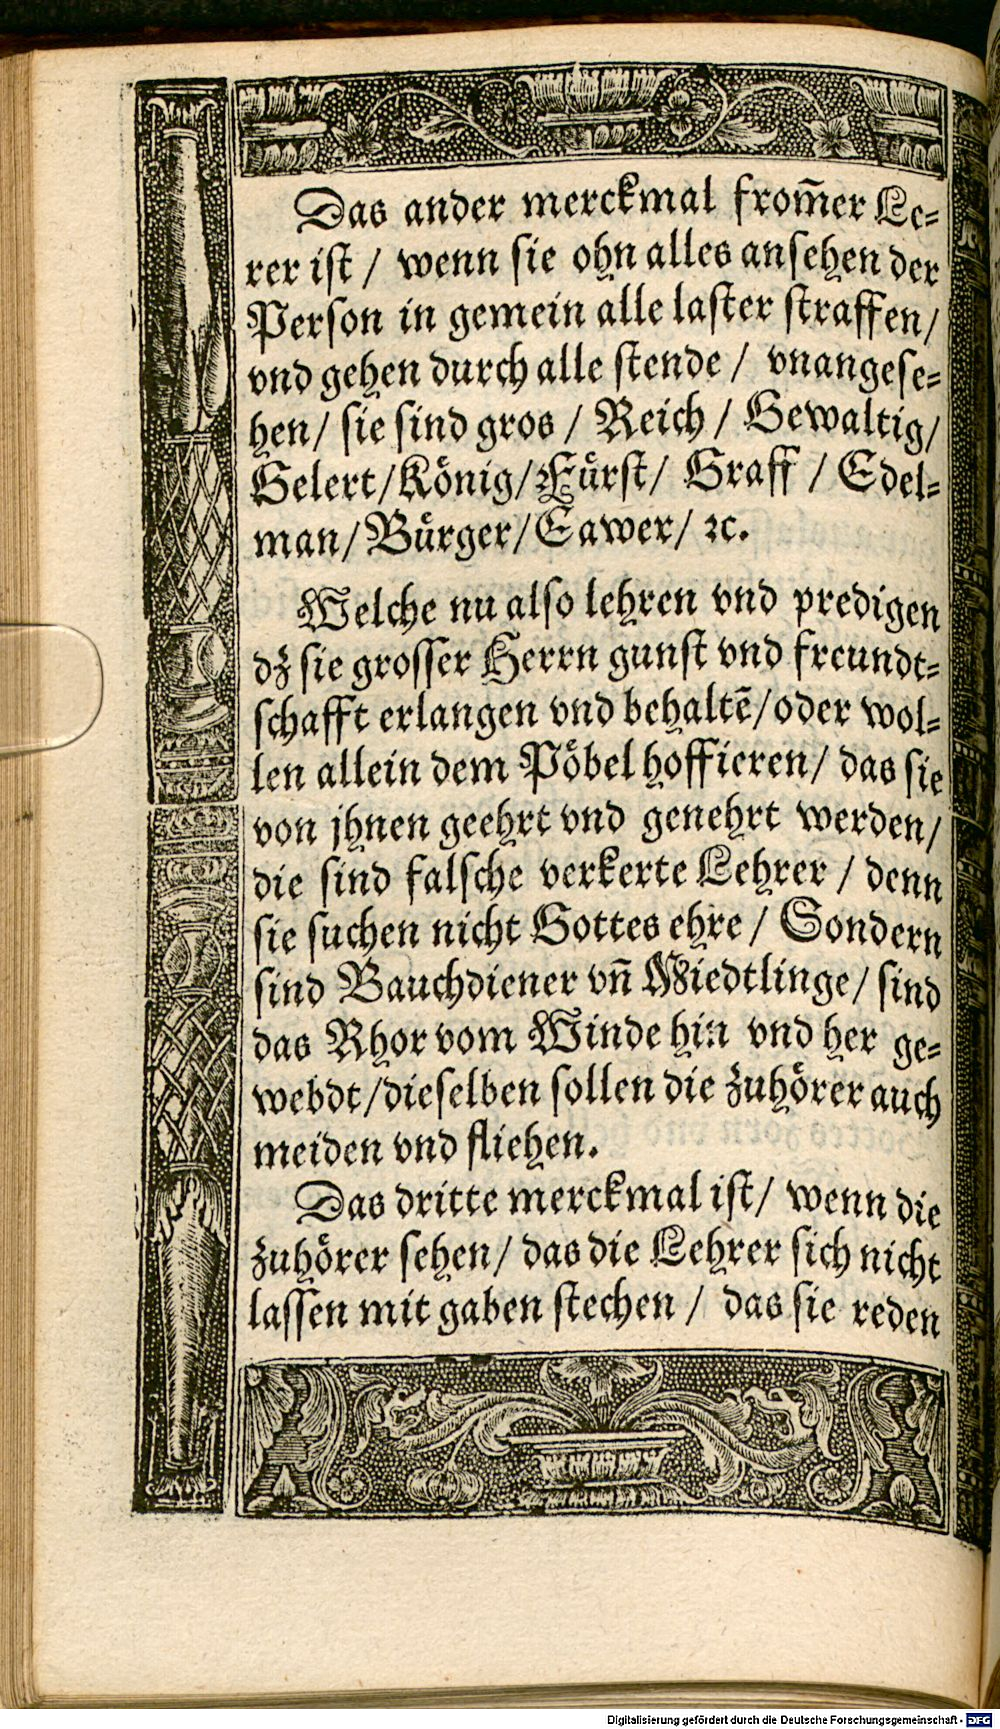 Das ander merckmal from̃er Le⸗
rer ist / wenn sie ohn alles ansehen der
Person in gemein alle laster straffen/
vnd gehen durch alle stende / vnangese⸗
hen/ sie sind gros / Reich / Gewaltig/
Gelert/König/Fürst/ Graff / Edel⸗
man/Bürger/Eawer/ ꝛc.
Welche nu also lehren vnd predigen
dz sie grosser Herrn gunst vnd freundt⸗
schafft erlangen vnd behaltẽ/oder wol⸗
len allein dem Pöbel hoffieren/ das sie
von jhnen geehrt vnd genehrt werden/
die sind falsche verkerte Lehrer / denn
sie suchen nicht Gottes ehre / Sondern
sind Bauchdiener vñ Miedtlinge/ sind
das Rhor vom Winde hin vnd her ge⸗
webdt/dieselben sollen die zuhörer auch
meiden vnd fliehen.
Das dritte merckmal ist/ wenn die
zuhörer sehen/ das die Lehrer sich nicht
lassen mit gaben stechen / das sie reden
Digitalisierung gefördert durch die Deutsche Forschungsgemeinschaft - DFG